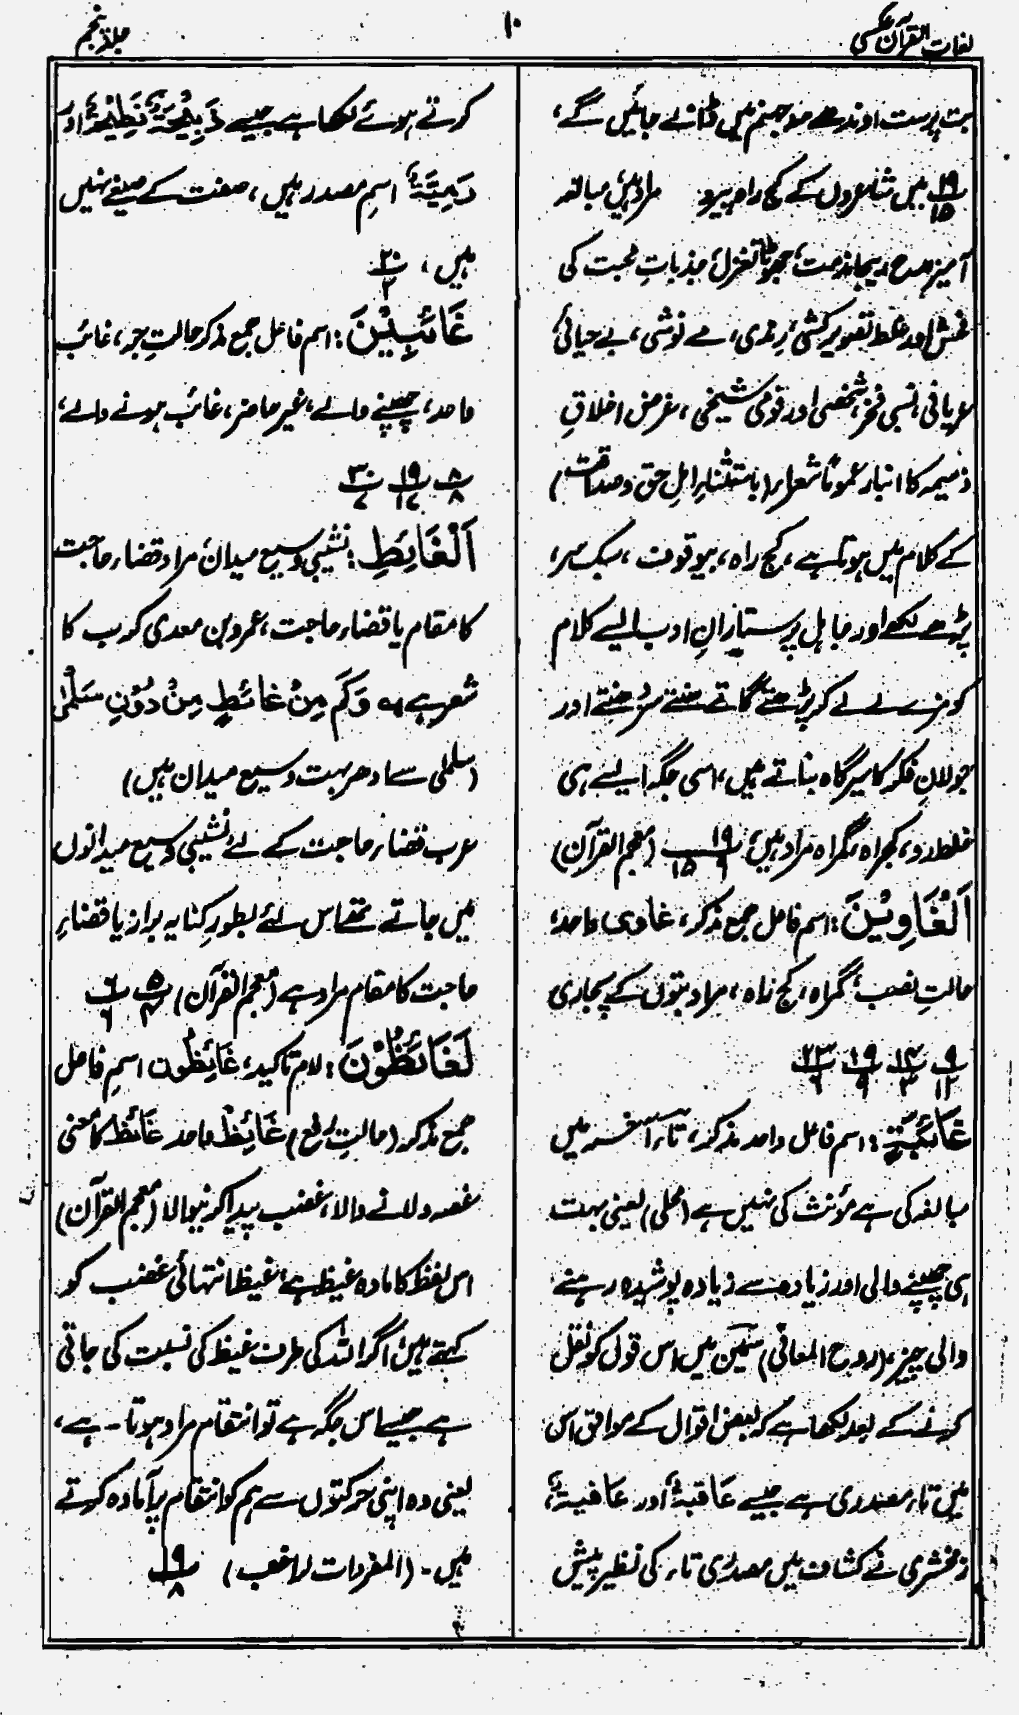 لغات القرآن عکسی
۱۰
جلد پنجم
بت پرست اوندھے منہ جہنم میں ڈالے جائیں گے،
۱۹/۱۵ میں شاعروں کے کج راہ پیرو مراد ہیں، مبالغہ
آمیز مدح، بیجا مذمت، جھوٹا تغزل، جذباتِ محبت کی
فحش اور غلط تصویر کشی، رندی، مے نوشی، بے حیائی
عریانی، نسبی فخر، شخصی اور قومی شیخی، غرض اخلاقِ
ذمیمہ کا انبار عموماً شعراء (باستثناءِ اہلِ حق و صداقت)
کے کلام میں ہوتا ہے، کج راہ، بیوقوف، سبک سر،
پڑھے لکھے اور جاہل پرستارانِ ادب ایسے کلام
کو مزے لے لے کر پڑھتے گاتے سنتے سر دھنتے اور
جولانِ فکر کا سیر گاہ بناتے ہیں، اسی جگہ ایسے ہی
غلط رو، کجراہ، گمراہ مراد ہیں، ۱۹/۱۵ ۶ (معجم القرآن)
اَلْغَاوِیْنَ: اسم فاعل جمع مذکر، غاوی واحد،
حالتِ نصب، گمراہ، کج راہ، مراد بتوں کے پجاری
۹/۱۲ ۱۴/۳ ۱۹/۹ ۲۳/۶
غَائِبَۃٍ: اسم فاعل واحد مذکر، تاء آخر میں
مبالغہ کی ہے مؤنث کی نہیں ہے (محلی) یعنی بہت
ہی چھپنے والی اور زیادہ سے زیادہ پوشیدہ رہنے
والی چیز، (روح المعانی) سمین میں اس قول کو نقل
کرنے کے بعد لکھا ہے کہ بعض اقوال کے موافق اس
میں تاء مصدری ہے جیسے عَاقبۃٌ اور عَافیۃٌ،
زمخشری نے کشاف میں مصدری تاء کی نظیر پیش
کرتے ہوئے لکھا ہے جیسے ذَبِیْحَۃٌ، نَطِیْحَۃٌ اور
رَمِیَّۃٌ اسمِ مصدر ہیں، صفت کے صیغے نہیں
ہیں، ۲۰/۲
غَائِبِیْنَ: اسم فاعل جمع مذکر حالتِ جر، غائب
واحد، چھپنے والے، غیر حاضر، غائب ہونے والے،
۸/۸ ۱۹/۱۷ ۳۰/۷
اَلْغَائِطِ: نشیبی وسیع میدان، مراد قضاء حاجت
کا مقام یا قضاء حاجت، عمرو بن معدی کرب کا
شعر ہے ؎ وَکَم مِنْ غائطٍ مِنْ دُوْنِ سَلْمٰی
(سلمٰی سے ادھر بہت وسیع میدان ہیں)
عرب قضاء حاجت کے لئے نشیبی وسیع میدانوں
میں جاتے تھے اس لئے بطور کنایہ براز یا قضاءِ
حاجت کا مقام مراد ہے (معجم القرآن) ۵/۴ ۶/۶
لَغَائِظُوْنَ: لام تاکید، غَائِظُون اسمِ فاعل
جمع مذکر (حالتِ رفع) غَائِظٌ واحد غَائظ کا معنی
غصہ دلانے والا، غضب پیدا کرنیوالا (معجم القرآن)
اس لفظ کا مادہ غیظ ہے، غیظ انتہائی غضب کو
کہتے ہیں، اگر اللہ کی طرف غیظ کی نسبت کی جاتی
ہے جیسے اس جگہ ہے تو انتقام مراد ہوتا ہے،
یعنی وہ اپنی حرکتوں سے ہم کو انتقام پر آمادہ کرتے
ہیں۔ (المفردات لراغب) ۱۹/۸